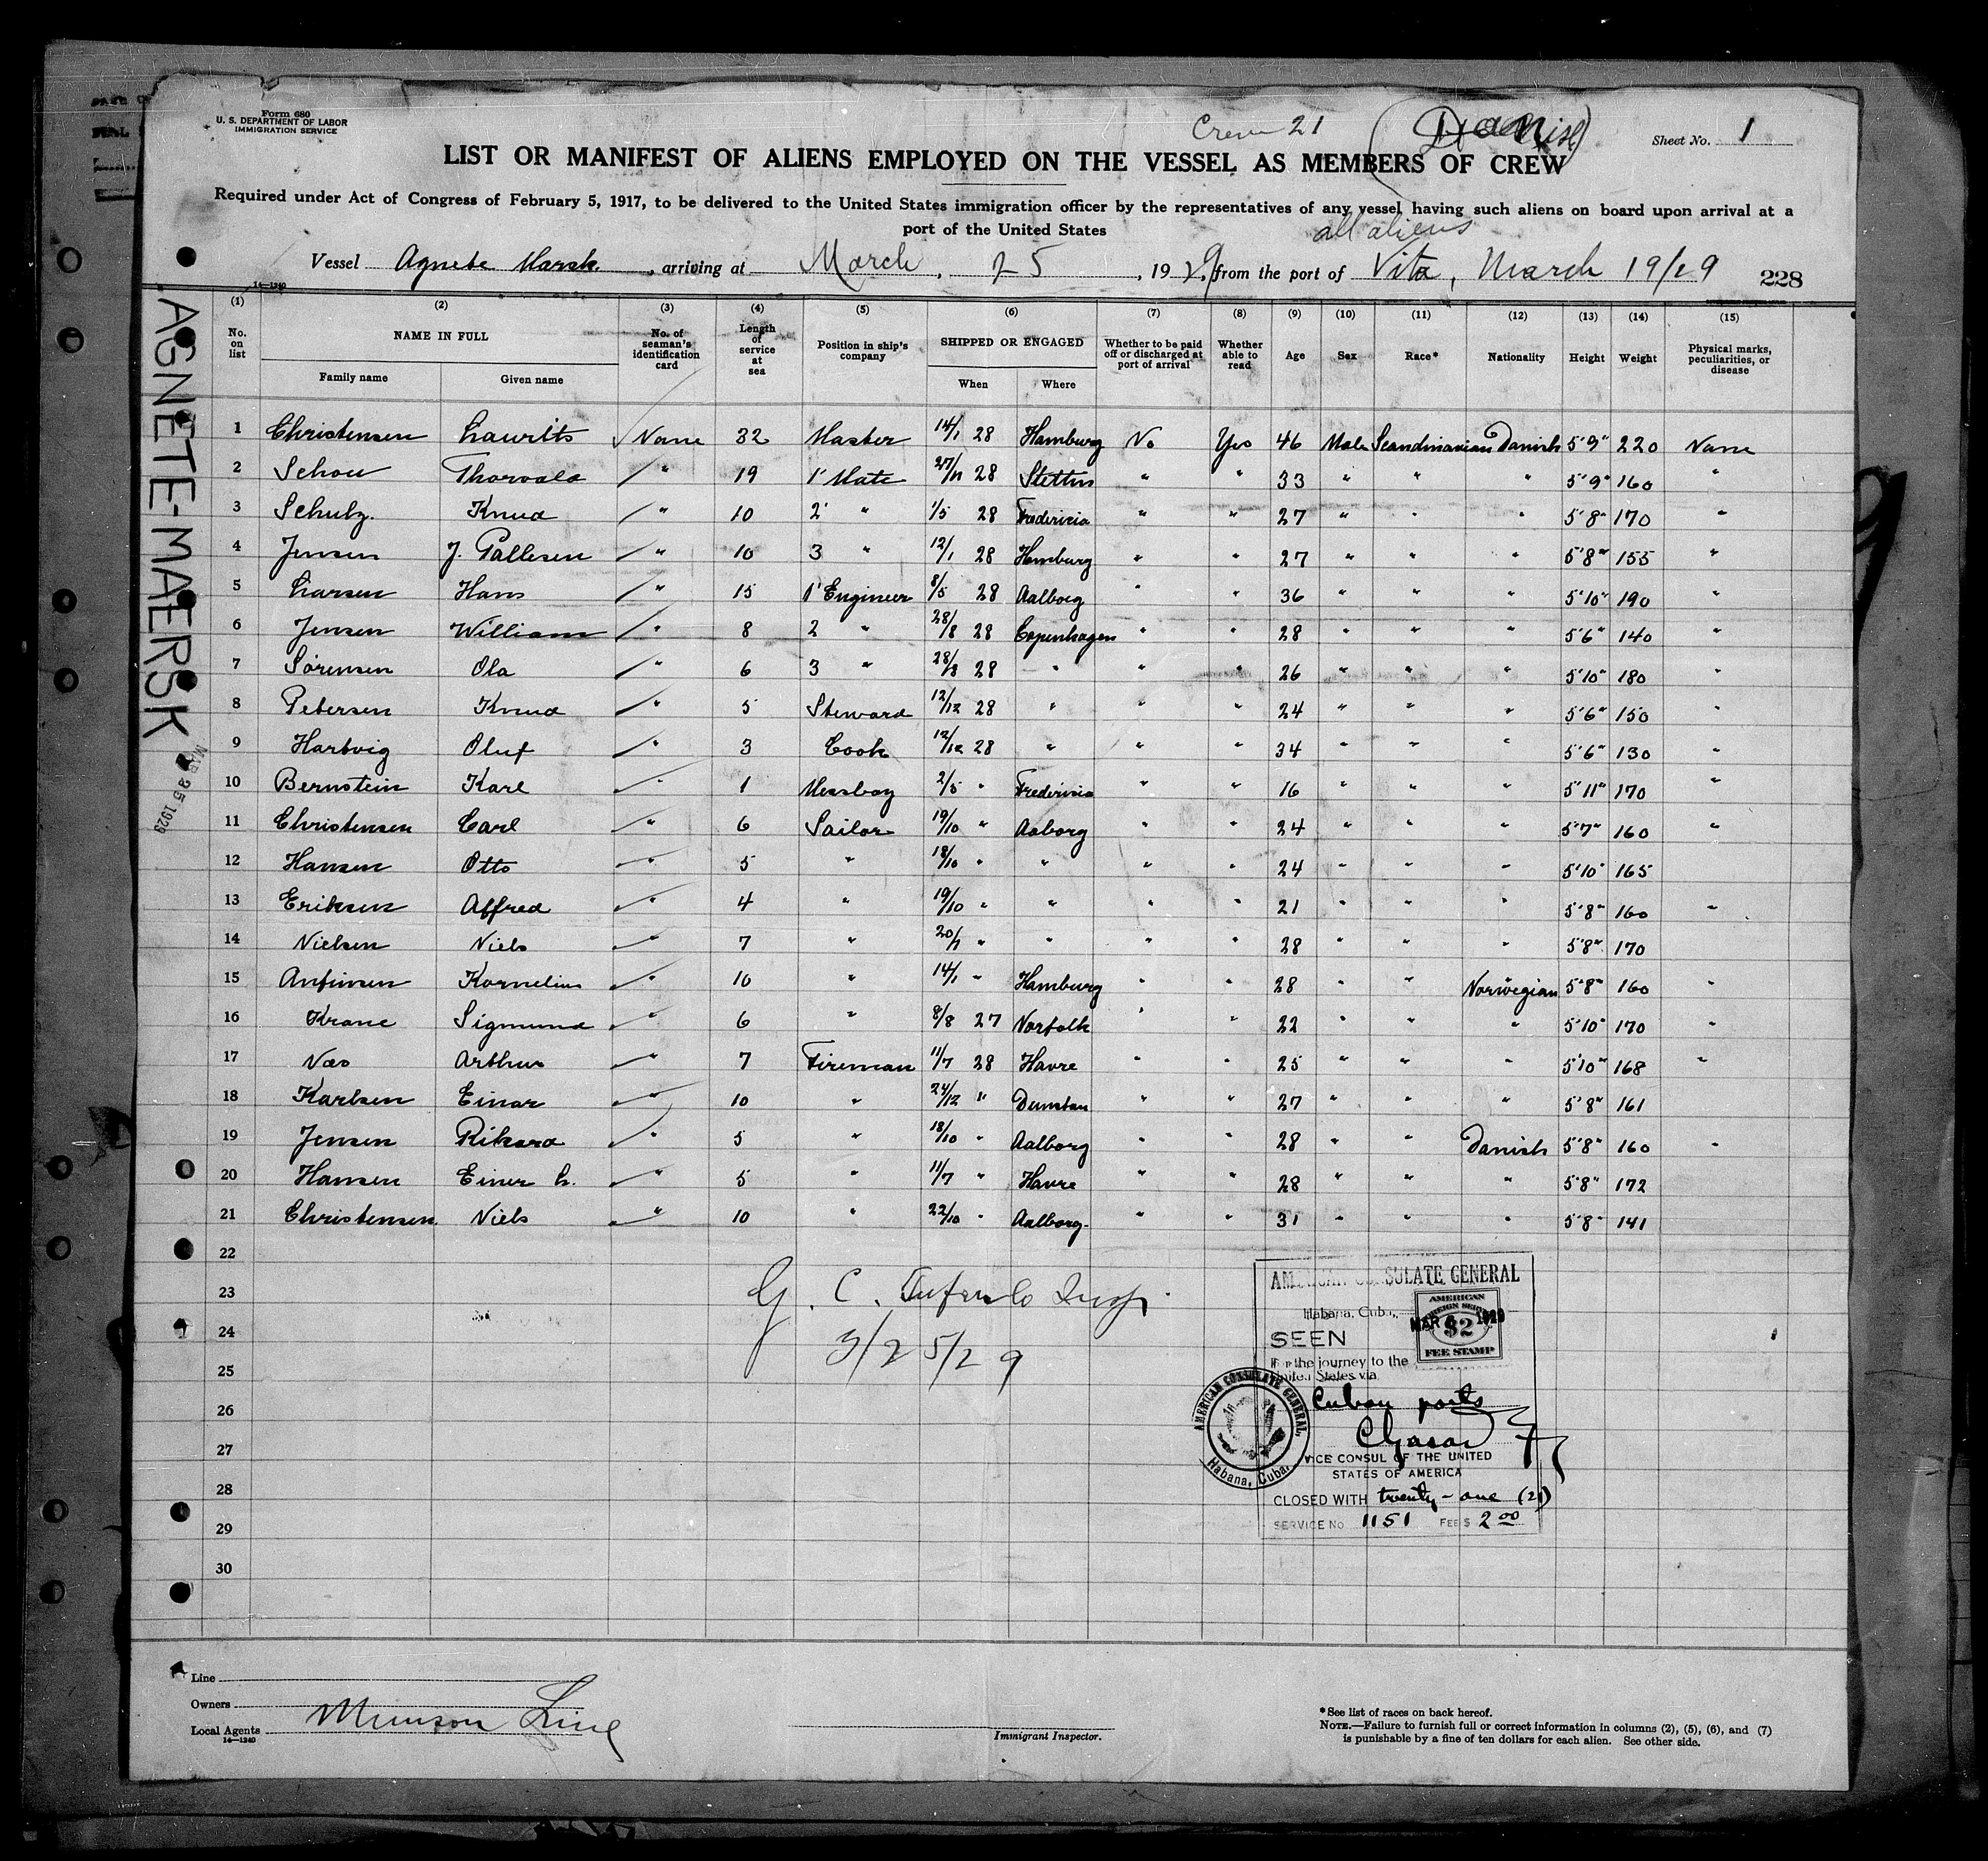 Form 680
U. S. DEPARTMENT OF LABOR
IMMIGRATION SERVICE
Crew 21
(Danish)
Sheet No. 1
LIST OR MANIFEST OF ALIENS EMPLOYED ON THE VESSEL AS MEMBERS OF CREW
Required under Act of Congress of February 5, 1917, to be delivered to the United States immigration officer by the representatives of any vessel having such aliens on board upon arrival at a
port of the United States
all aliens
Vessel Agnete Mærsk, arriving at March, 25, 1929, from the port of Vita, March 19/29
228
14—1240
AGNETE-MAERSK
MAR 25 1929
(1) (2) (3) (4) (5) (6) (7) (8) (9) (10) (11) (12) (13) (14) (15)
No. on list NAME IN FULL Family name Given name No. of seaman's identification card Length of service at sea Position in ship's company SHIPPED OR ENGAGED When Where Whether to be paid off or discharged at port of arrival Whether able to read Age Sex Race* Nationality Height Weight Physical marks, peculiarities, or disease
1 Christensen Laurits None 32 Master 14/1 28 Hamburg No Yes 46 Male Scandinavian Danish 5'9" 220 None
2 Schou Thorvald " 19 1' Mate 27/11 28 Stettin " " 33 " " " 5'9" 160 "
3 Schulz. Knud " 10 2' " 1/5 28 Fredericia " " 27 " " " 5'8" 170 "
4 Jensen J. Pallesen " 10 3 " 12/1 28 Hamburg " " 27 " " " 5'8" 155 "
5 Larsen Hans " 15 1' Engineer 8/5 28 Aalborg " " 36 " " " 5'10" 190 "
6 Jensen William " 8 2 " 28/8 28 Copenhagen " " 28 " " " 5'6" 140 "
7 Sørensen Ola " 6 3 " 28/8 28 " " " 26 " " " 5'10" 180 "
8 Petersen Knud " 5 Steward 12/12 28 " " " 24 " " " 5'6" 150 "
9 Hartvig Oluf " 3 Cook 12/12 28 " " " 34 " " " 5'6" 130 "
10 Bernstein Karl " 1 Messboy 2/5 " Fredericia " " 16 " " " 5'11" 170 "
11 Christensen Carl " 6 Sailor 19/10 " Aaborg " " 24 " " " 5'7" 160 "
12 Hansen Otto " 5 " 18/10 " " " " 24 " " " 5'10" 165
13 Eriksen Alfred " 4 " 19/10 " " " " 21 " " " 5'8" 160 "
14 Nielsen Niels " 7 " 20/7 " " " " 28 " " " 5'8" 170
15 Anfinsen Kornelius " 10 " 14/1 " Hamburg " " 28 " " Norwegian 5'8" 160 "
16 Krane Sigmund " 6 " 8/8 27 Norfolk " " 22 " " " 5'10" 170 "
17 Næs Arthur " 7 Fireman 11/7 28 Havre " " 25 " " " 5'10" 168 "
18 Karlsen Einar " 10 " 24/12 " Dunstan " " 27 " " " 5'8" 161
19 Jensen Rikard " 5 " 18/10 " Aalborg " " 28 " " Danish 5'8" 160 "
20 Hansen Einer L. " 5 " 11/7 " Havre " " 28 " " " 5'8" 172
21 Christensen. Niels " 10 " 22/10 " Aalborg. " " 31 " " " 5'8" 141
22
23
24
25
26
27
28
29
30
G. C. Insp.
3/25/29
AMERICAN CONSULATE GENERAL
Habana, Cuba,
AMERICAN FOREIGN SERVICE $2 FEE STAMP
MAR 1929
SEEN
For the journey to the
United States via
Cuban ports
VICE CONSUL OF THE UNITED
STATES OF AMERICA
CLOSED WITH twenty-one (21)
SERVICE No 1151 FEE $ 2 00
AMERICAN CONSULATE GENERAL, Habana, Cuba.
Line
Owners
Local Agents Munson Line
14—1240
Immigrant Inspector.
*See list of races on back hereof.
NOTE.—Failure to furnish full or correct information in columns (2), (5), (6), and (7)
is punishable by a fine of ten dollars for each alien. See other side.